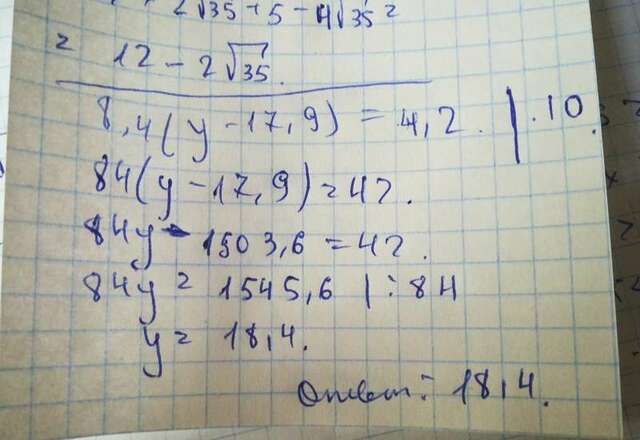 2√35 + 5 - 4√35 =
= 12 - 2√35.
8,4(y - 17,9) = 4,2. | ·10.
84(y - 17,9) = 42.
84y - 1503,6 = 42.
84y = 1545,6 | : 84
y = 18,4.
Ответ: 18,4.